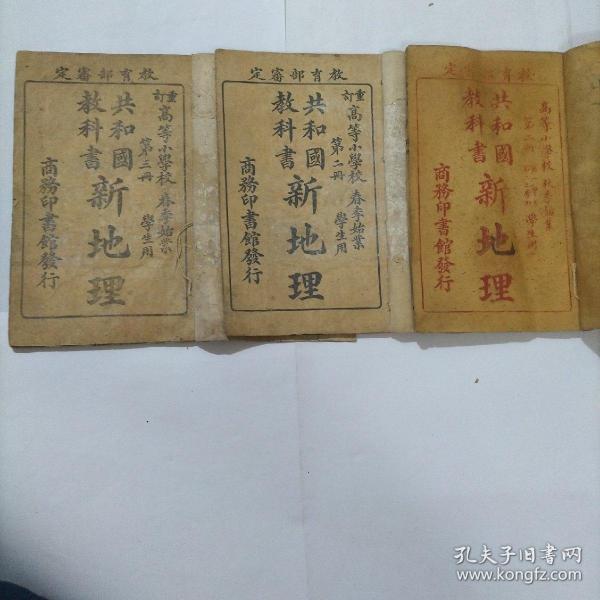 教育部審定
重訂高等小學校 春季始業
第三冊 學生用
共和國
教科書
新地理
商務印書館發行
教育部審定
重訂高等小學校 春季始業
第二冊 學生用
共和國
教科書
新地理
商務印書館發行
高等小學校 秋季始業
共和國
教科書
新地理
商務印書館發行
孔夫子旧书网
www.kongfz.com